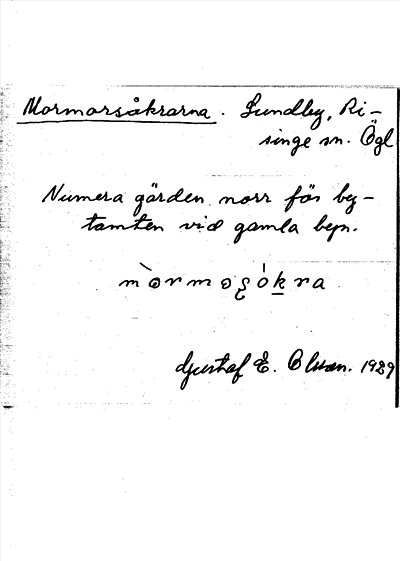 Mormorsåkrarna. Lundby, Ri-
singe sn. Ögl
Numera gärden norr för by-
tomten vid gamla byn.
mòrmoʂókra
Gustaf E. Olsson. 1929